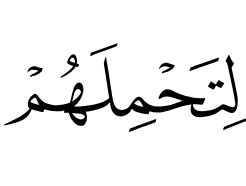 لِتَحْمِلَهُمْ